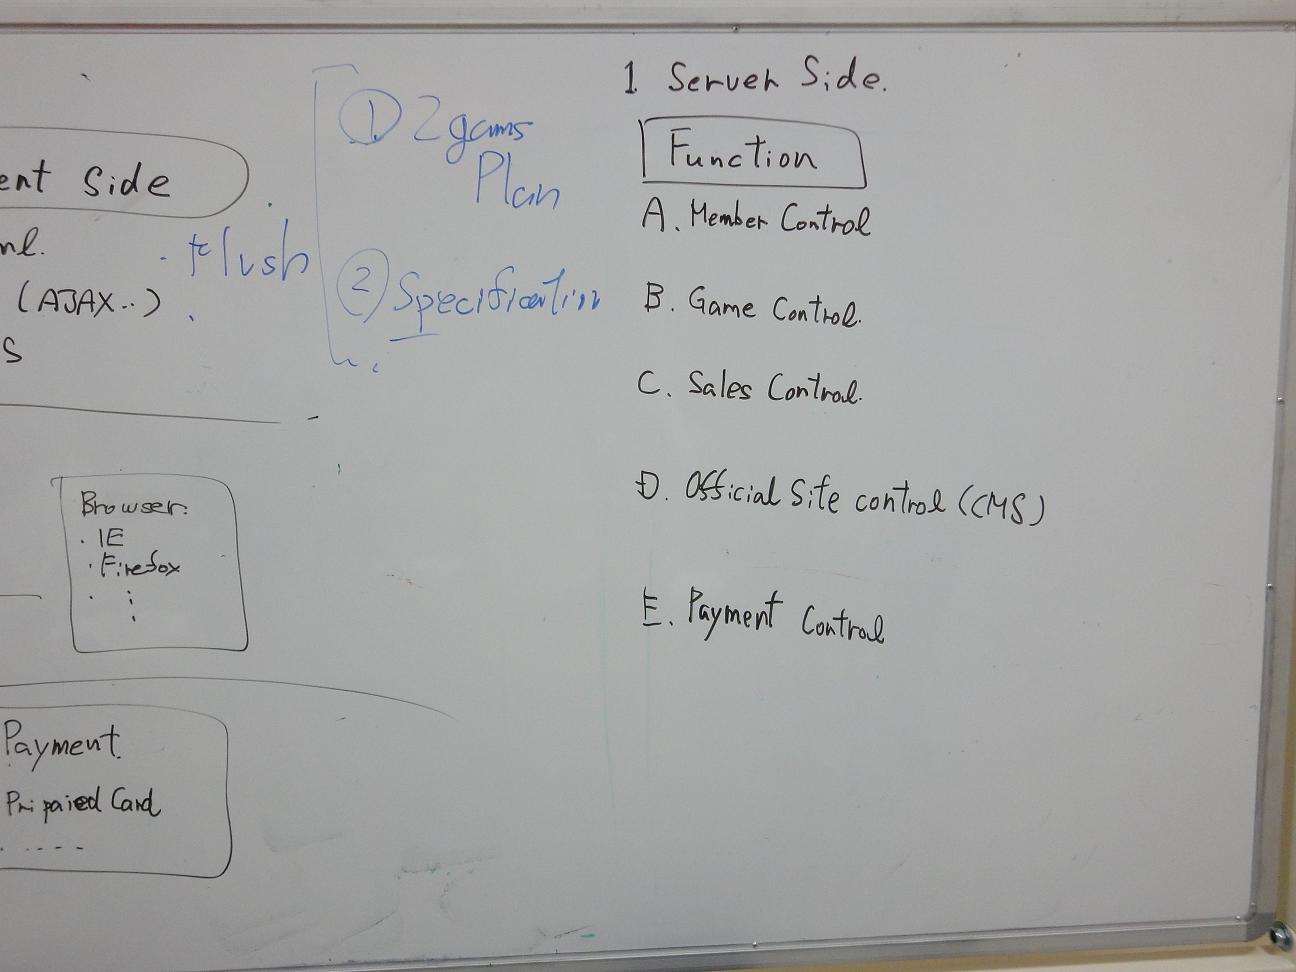 ent Side
ml.
(AJAX..)
S
Flush
① 2 gams
Plan
② Specification
1 Server Side.
Function
A. Member Control
B. Game Control.
C. Sales Control.
D. Official Site control (CMS)
E. Payment Control
Browser:
・IE
・Firefox
Payment
Pripaired Card